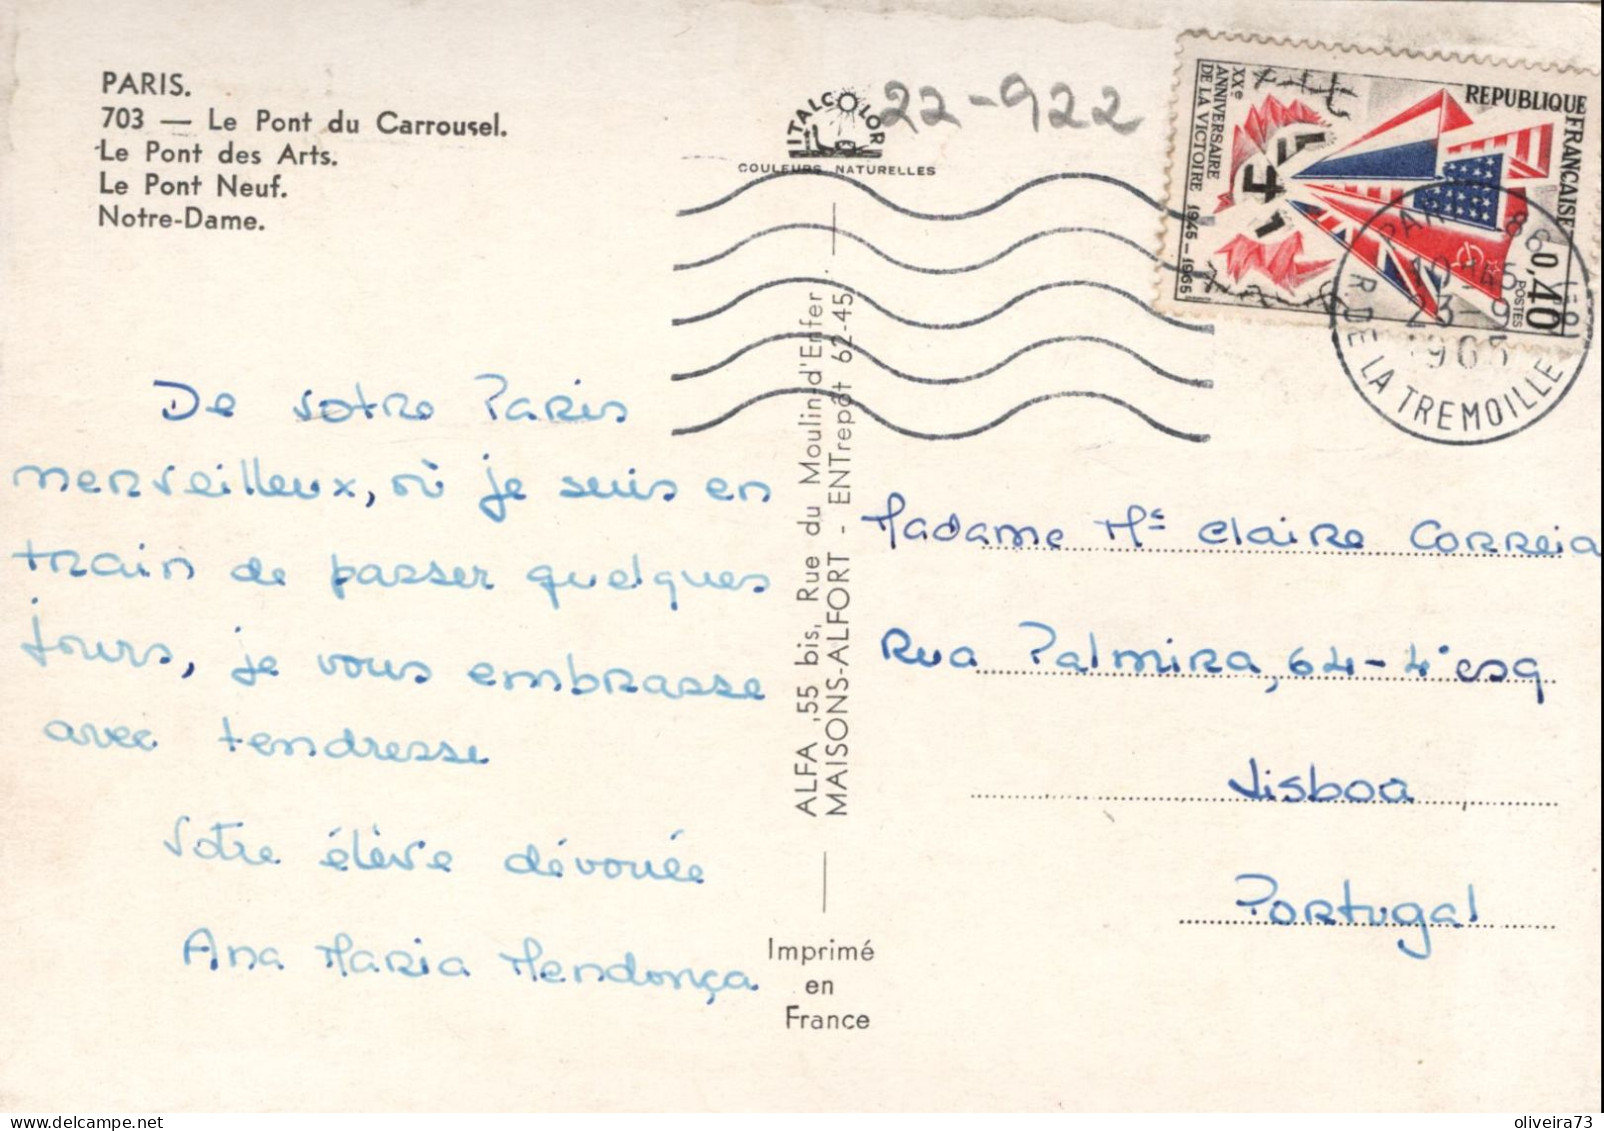 PARIS.
703 — Le Pont du Carrousel.
Le Pont des Arts.
Le Pont Neuf.
Notre-Dame.
ITALCOLOR
COULEURS NATURELLES
22-922
REPUBLIQUE FRANÇAISE
XXe
ANNIVERSAIRE
DE LA VICTOIRE 1945-1965
0,40
POSTES
PARIS 86
23-9
1965
R. DE LA TREMOILLE (8e)
De votre Paris
merveilleux, où je suis en
train de passer quelques
jours, je vous embrasse
avec tendresse
Votre élève dévouée
Ana Maria Mendonça
ALFA ,55 bis, Rue du Moulin-d'Enfer
MAISONS-ALFORT - ENTrepôt 62-45
Imprimé
en
France
Madame Me Claire Correia
Rua Palmira, 64-4º esq
Lisboa
Portugal
oliveira73